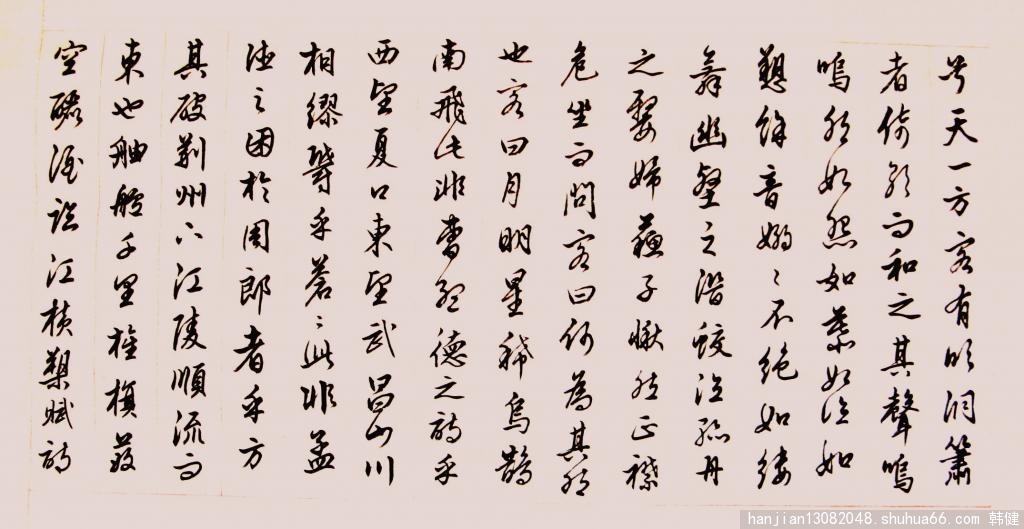 兮天一方客有吹洞簫
者倚歌而和之其聲嗚
嗚然如怨如慕如泣如
愬餘音嫋〻不絕如縷
舞幽壑之潛蛟泣孤舟
之嫠婦蘇子愀然正襟
危坐而問客曰何為其然
也客曰月明星稀烏鵲
南飛此非曹孟德之詩乎
西望夏口東望武昌山川
相繆鬱乎蒼〻此非孟
德之困於周郎者乎方
其破荊州下江陵順流而
東也舳艫千里旌旗蔽
空釃酒臨江橫槊賦詩
hanjian13082048.shuhua66.com 韩健